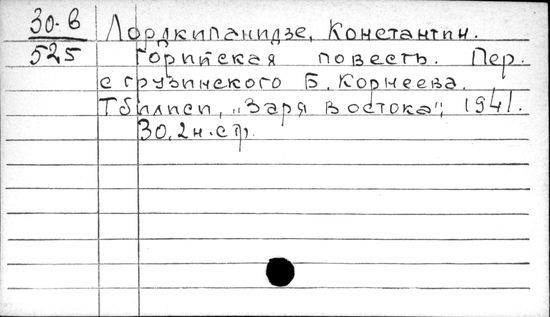 30-6 Лордкипанидзе, Константин.
525 Горийская повесть. Пер.
с грузинского Б. Корнеева.
Тбилиси, "Заря Востока", 1941.
30, 2 н. стр.